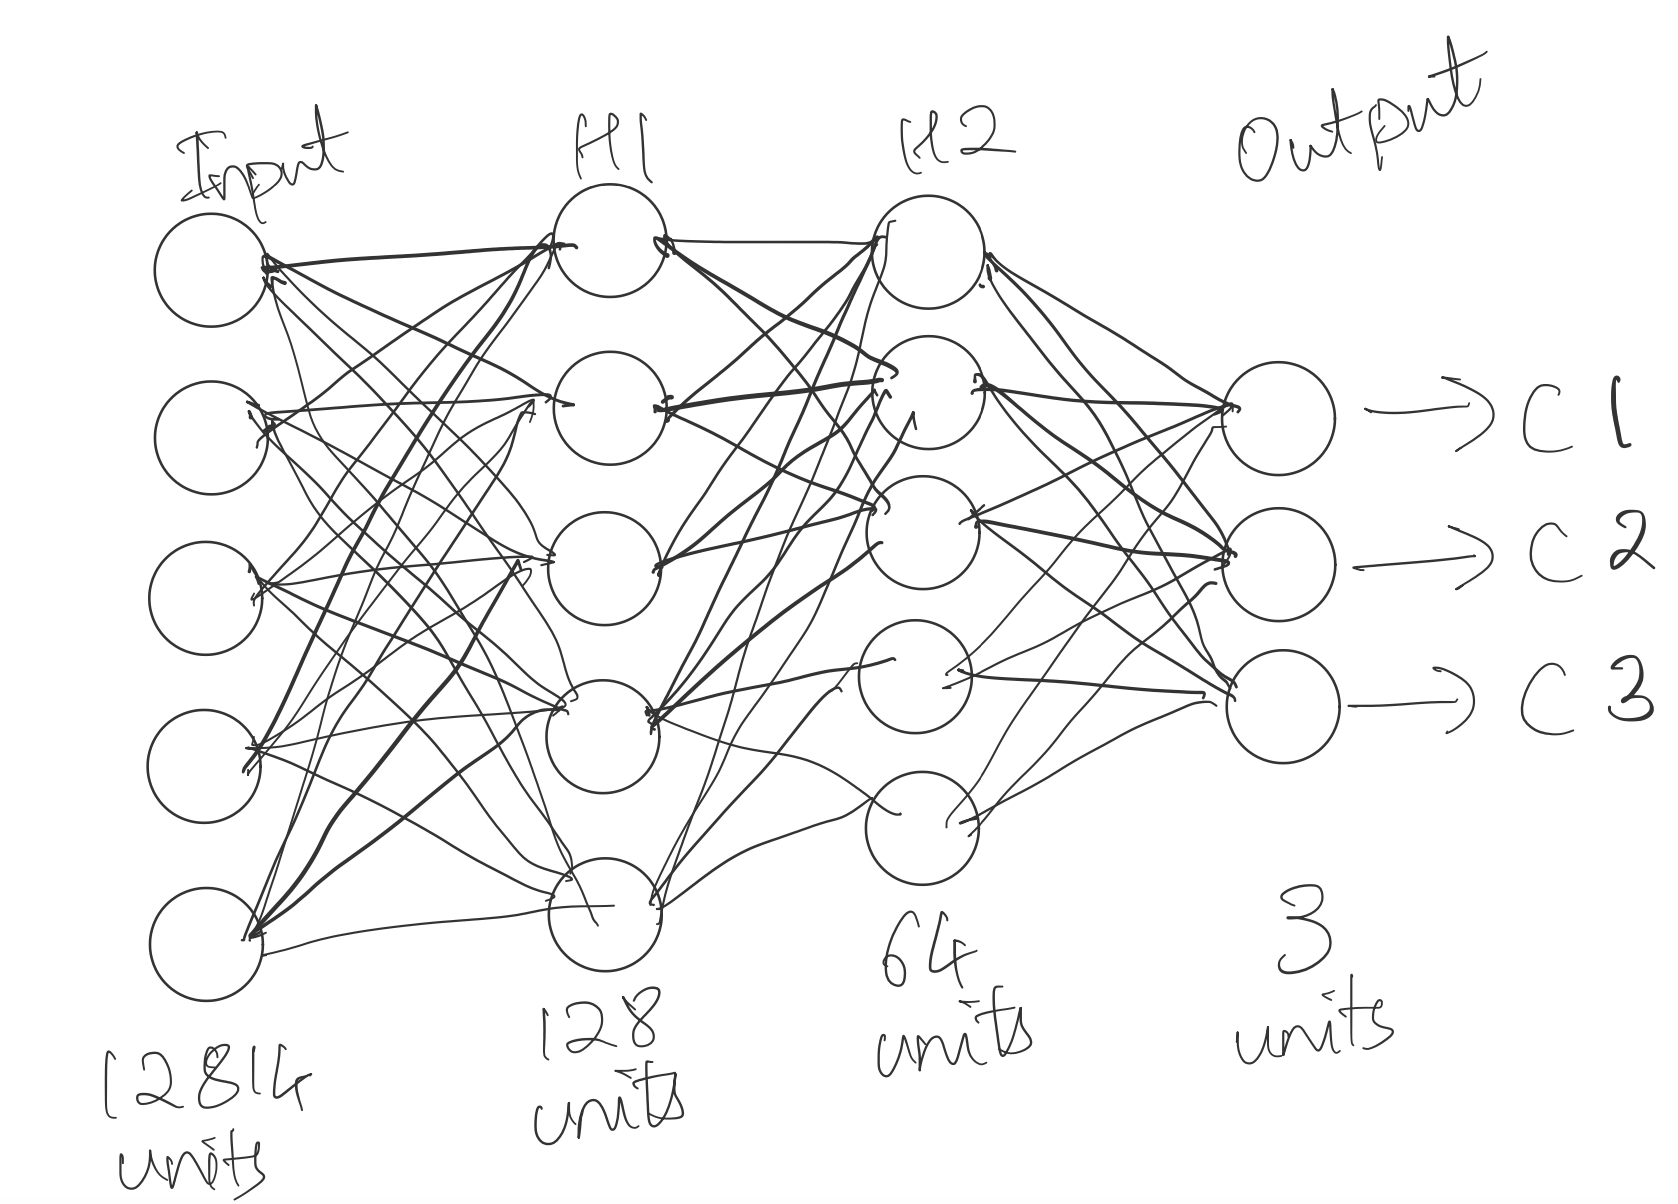 Input
H1
H2
Output
C1
C2
C3
12814
units
128
units
64
units
3
units